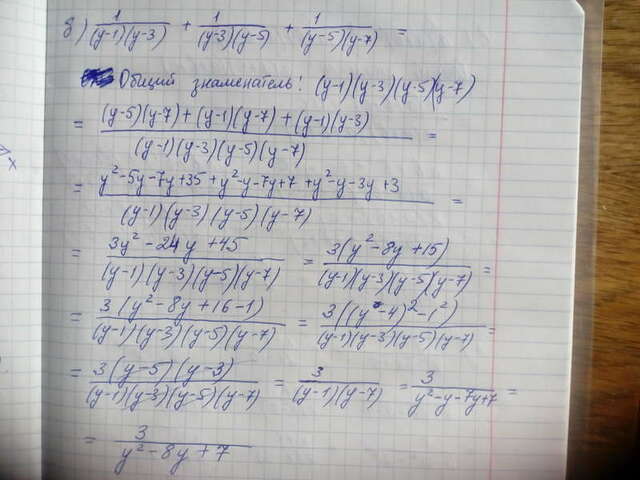 б) 1/((y-1)(y-3)) + 1/((y-3)(y-5)) + 1/((y-5)(y-7)) =
Общий знаменатель! (y-1)(y-3)(y-5)(y-7)
= ((y-5)(y-7)+(y-1)(y-7)+(y-1)(y-3))/((y-1)(y-3)(y-5)(y-7)) =
= (y²-5y-7y+35+y²-y-7y+7+y²-y-3y+3)/((y-1)(y-3)(y-5)(y-7)) =
= (3y²-24y+45)/((y-1)(y-3)(y-5)(y-7)) = 3(y²-8y+15)/((y-1)(y-3)(y-5)(y-7)) =
= 3(y²-8y+16-1)/((y-1)(y-3)(y-5)(y-7)) = 3((y-4)²-1²)/((y-1)(y-3)(y-5)(y-7)) =
= 3(y-5)(y-3)/((y-1)(y-3)(y-5)(y-7)) = 3/((y-1)(y-7)) = 3/(y²-y-7y+7) =
= 3/(y²-8y+7)
x